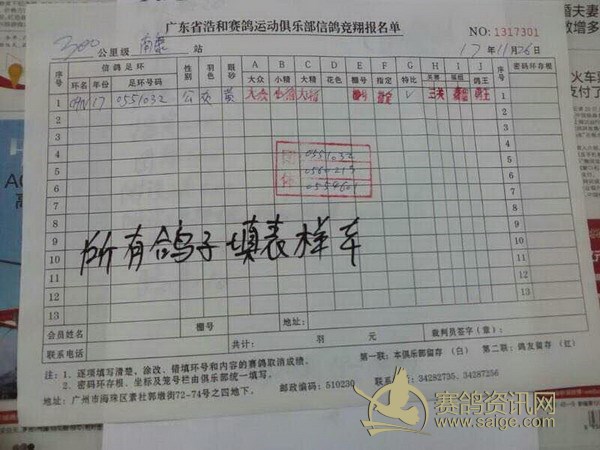 广东省浩和赛鸽运动俱乐部信鸽竞翔报名单
NO: 1317301
300公里级 南康 站 17年11月26日
序号 信鸽足环 性别 羽色 眼砂 A B C D E F G H I J 密码环存根
环名 年份 足环号码 大众 小精 大精 花色 棚号 指定 特比 鸽王 序号
1 CHN 17 0551032 公 黄 大众 大精 棚号 指定 √ 三关 鸽王 1
2 2
3 3
4 0551032 4
5 5
6 6
7 7
8 8
9 9
10 10
11 11
12 12
13 13
所有鸽子填表样车
会员姓名 棚号 地址:
联系电话 共计: 羽 元 裁判员签字(章):
注:1. 逐项填写清楚,涂改、错填环号和内容的赛鸽取消成绩。 第一联:本俱乐部留存(白) 第二联:鸽友留存(红)
2. 密码环存根、坐标及笼号栏由俱乐部统一填写。
地址:广州市海珠区素社郭墩街72-74号之四地下。 邮政编码:510230 联系电话:34282735、34287256
赛鸽资讯网
www.saige.com